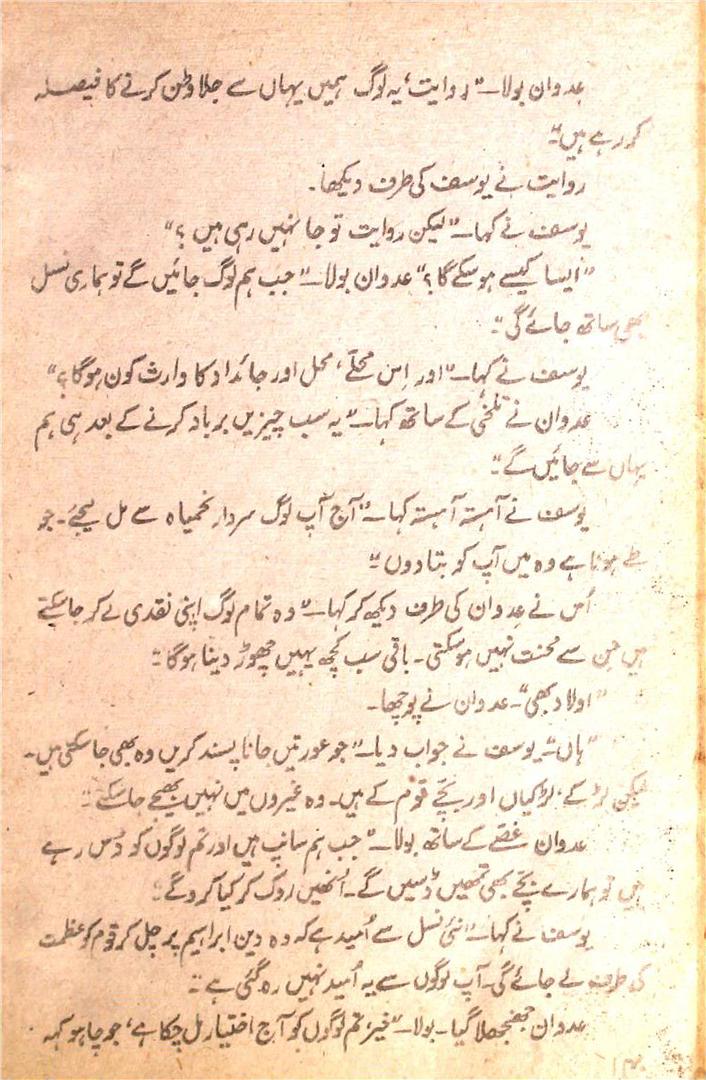 عدوان بولا۔ "روایت، یہ لوگ ہمیں یہاں سے جلا وطن کرنے کا فیصلہ
کر رہے ہیں"۔
روایت نے یوسف کی طرف دیکھا۔
یوسف نے کہا۔ "لیکن روایت تو جا نہیں رہی ہیں ؟"
"ایسا کیسے ہو سکے گا؟" عدوان بولا۔ "جب ہم لوگ جائیں گے تو ہماری نسل
بھی ساتھ جائے گی"۔
یوسف نے کہا۔ "اور اِس محلّے، محل اور جائداد کا وارث کون ہوگا؟"
عدوان نے تلخی کے ساتھ کہا۔ "یہ سب چیزیں برباد کرنے کے بعد ہی ہم
یہاں سے جائیں گے"۔
یوسف نے آہستہ آہستہ کہا۔ "آج آپ لوگ سردار نحمیاہ سے مل لیجئے۔ جو
طے ہوتا ہے وہ میں آپ کو بتا دوں"۔
اُس نے عدوان کی طرف دیکھ کر کہا۔ "وہ تمام لوگ اپنی نقدی لے کر جا سکتے
ہیں جن سے محنت نہیں ہو سکتی۔ باقی سب کچھ یہیں چھوڑ دینا ہوگا"۔
"اولاد بھی"۔ عدوان نے پوچھا۔
"ہاں"۔ یوسف نے جواب دیا۔ "جو عورتیں جانا پسند کریں وہ بھی جا سکتی ہیں۔
لیکن لڑکے، لڑکیاں اور بچّے قوم کے ہیں۔ وہ غیروں میں نہیں بھیجے جا سکتے"۔
عدوان غصّے کے ساتھ بولا۔ "جب ہم سانپ ہیں اور تم لوگوں کو ڈس رہے
ہیں تو ہمارے بچّے بھی تمھیں ڈسیں گے۔ اُنھیں روک کر کیا کرو گے"۔
یوسف نے کہا۔ "نئی نسل سے اُمید ہے کہ وہ دین ابراہیم پر چل کر قوم کو عظمت
کی طرف لے جائے گی۔ آپ لوگوں سے یہ اُمید نہیں رہ گئی ہے"۔
عدوان جھنجھلا گیا۔ بولا۔ "خیر، تم لوگوں کو آج اختیار مل چکا ہے، جو چاہو کہہ